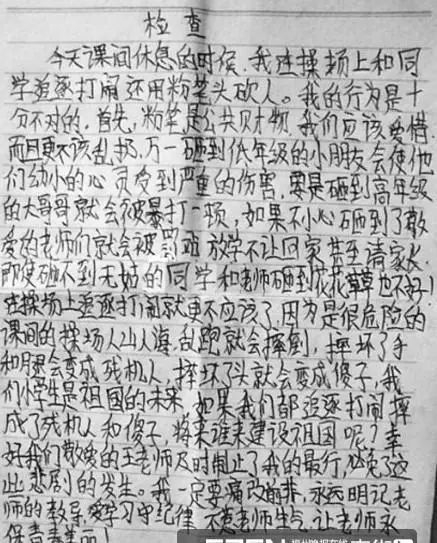 检 查
今天课间休息的时候,我在操场上和同
学追逐打闹还用粉笔头砍人。我的行为是十
分不对的,首先,粉笔是公共财物,我们应该爱惜
而且更不该乱扔,万一砸到低年级的小朋友会使他
们幼小的心灵受到严重的伤害,要是砸到高年级
的大哥哥就会被暴打一顿,如果不小心砸到了敬
爱的老师们就会被罚站 放学不让回家 甚至请家长
即使砸不到无辜的同学和老师砸到花花草草也不好!
在操场上追逐打闹就更不应该了,因为是很危险的
课间的操场人山人海,乱跑就会摔倒,摔坏了手
和腿会变成残机人,摔坏了头就会变成傻子,我
们小学生是祖国的未来,如果我们都追逐打闹摔
成了残机人和傻子,将来谁来建设祖国呢?幸
好我们敬爱的王老师及时制止了我的最行,避免了这
些悲剧的发生。我一定要痛改前非,永远明记老
师的教导,爱学习守纪律 不惹老师生气,让老师永
保青春美丽!